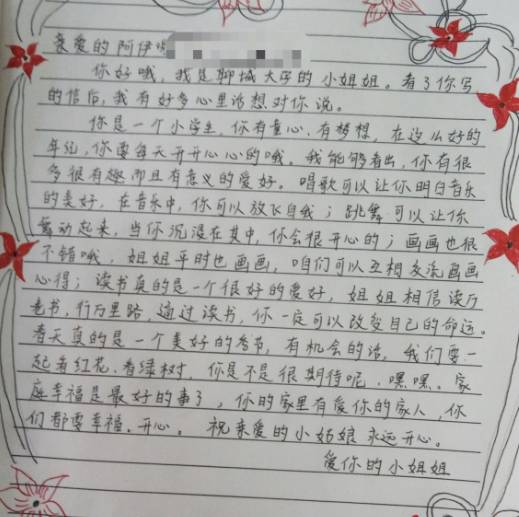 亲爱的阿伊
你好哦，我是聊城大学的小姐姐。看了你写
的信后，我有好多心里话想对你说。
你是一个小学生，你有童心，有梦想，在这么好的
年纪，你要每天开开心心的哦。我能够看出，你有很
多很有趣而且有意义的爱好。唱歌可以让你明白音乐
的美好，在音乐中，你可以放飞自我；跳舞可以让你
舞动起来，当你沉浸在其中，你会很开心的；画画也很
不错哦，姐姐平时也画画，咱们可以互相交流画画
心得；读书真的是一个很好的爱好，姐姐相信读万
卷书，行万里路，通过读书，你一定可以改变自己的命运。
春天真的是一个美好的季节，有机会的话，我们要一
起看红花、看绿树，你是不是很期待呢，嘿嘿。家
庭幸福是最好的事了，你的家里有爱你的家人，你
们都要幸福、开心。祝亲爱的小姑娘永远开心。
爱你的小姐姐